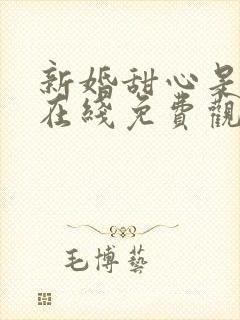 新婚甜心呆
在綫免費觀
毛博藝